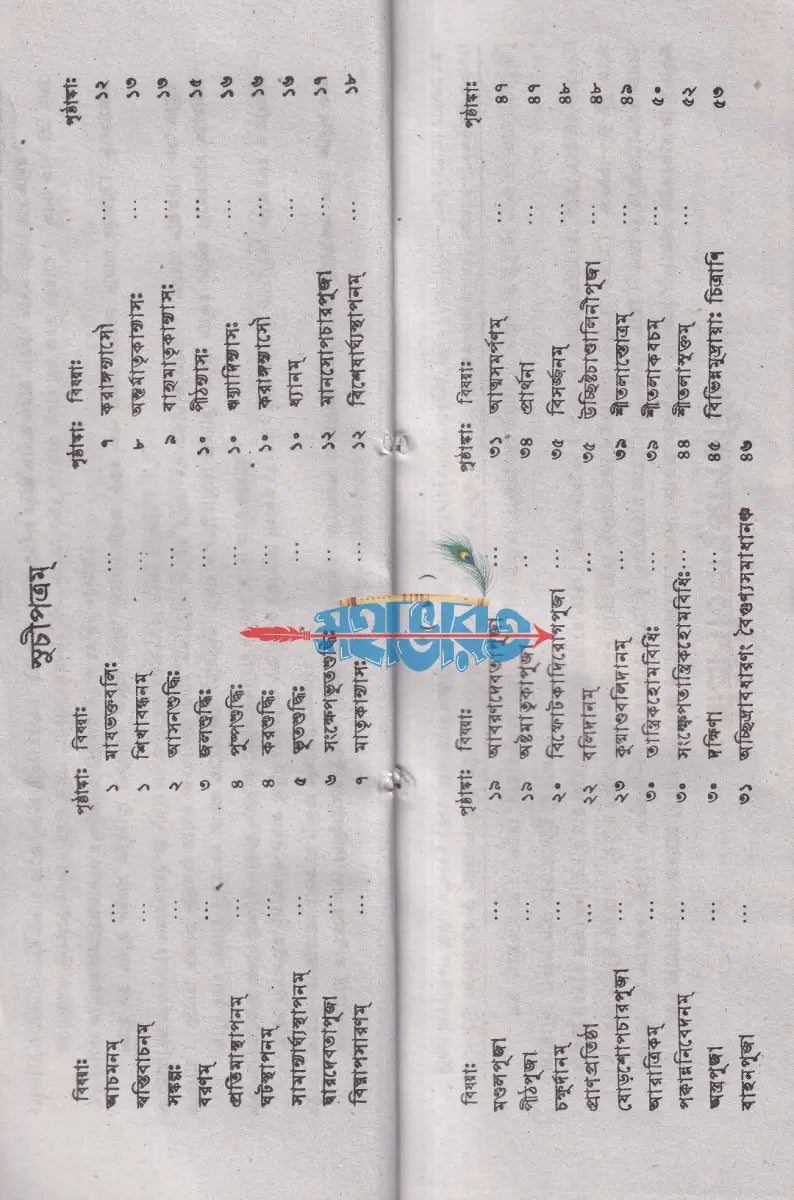 সূচীপত্রম্
বিষয়াঃ পৃষ্ঠাঙ্কাঃ বিষয়াঃ পৃষ্ঠাঙ্কাঃ বিষয়াঃ পৃষ্ঠাঙ্কাঃ
আচমনম্ ... ১ মাষভক্তবলিঃ ... ৭ করাঙ্গন্যাসৌ ... ১২
স্বস্তিবাচনম্ ... ১ শিখাবন্ধনম্ ... ৮ অন্তর্মাতৃকান্যাসঃ ... ১৩
সঙ্কল্পঃ ... ২ আসনশুদ্ধিঃ ... ৯ বাহ্যমাতৃকান্যাসঃ ... ১৩
বরণম্ ... ৩ জলশুদ্ধিঃ ... ১০ পীঠন্যাসঃ ... ১৫
প্রতিমাস্থাপনম্ ... ৪ পুষ্পশুদ্ধিঃ .. ১০ ঋষ্যাদিন্যাসঃ ... ১৬
ঘটস্থাপনম্ ... ৪ করশুদ্ধিঃ ... ১০ করাঙ্গন্যাসৌ ... ১৬
সামান্যার্ঘ্যস্থাপনম্ ... ৫ ভূতশুদ্ধিঃ ... ১০ ধ্যানম্ ... ১৬
দ্বারদেবতাপূজা ... ৬ সংক্ষেপভূতশুদ্ধিঃ .. ১২ মানসোপচারপূজা ... ১৭
বিঘ্নাপসারণম্ ... ৭ মাতৃকান্যাসঃ ... ১২ বিশেষার্ঘ্যস্থাপনম্ ... ১৮
মহাভারত
বিষয়াঃ পৃষ্ঠাঙ্কাঃ বিষয়াঃ পৃষ্ঠাঙ্কাঃ বিষয়াঃ পৃষ্ঠাঙ্কাঃ
মণ্ডলপূজা ... ১৯ আবরণদেবতাপূজা ... ৩১ আত্মসমর্পণম্ ... ৪৭
পীঠপূজা ... ১৯ অষ্টমাতৃকাপূজা .. ৩৪ প্রার্থনা ... ৪৭
চক্ষুর্দানম্ ... ২০ বিস্ফোটকাদিরোগপূজা ৩৫ বিসর্জ্জনম্ ... ৪৮
প্রাণপ্রতিষ্ঠা ... ২২ বলিদানম্ ... ৩৫ উচ্ছিষ্টচাণ্ডালিনীপূজা ... ৪৮
ষোড়শোপচারপূজা ... ২৩ কুষ্মাণ্ডবলিদানম্ ৩৯ শীতলাস্তোত্রম্ ... ৪৯
আরাত্রিকম্ ... ৩০ তান্ত্রিকহোমবিধিঃ ... ৩৯ শীতলাকবচম্ ... ৫০
পক্বান্ননিবেদনম্ ... ৩০ সংক্ষেপতান্ত্রিকহোমবিধিঃ... ৪৪ শীতলাসূক্তম্ ... ৫২
অস্ত্রপূজা ... ৩০ দক্ষিণা ... ৪৫ বিভিন্নমুদ্রায়াঃ চিত্রাণি ৫৩
বাহনপূজা ... ৩১ অচ্ছিদ্রাবধারণং বৈগুণ্যসমাধানঞ্চ ৪৬